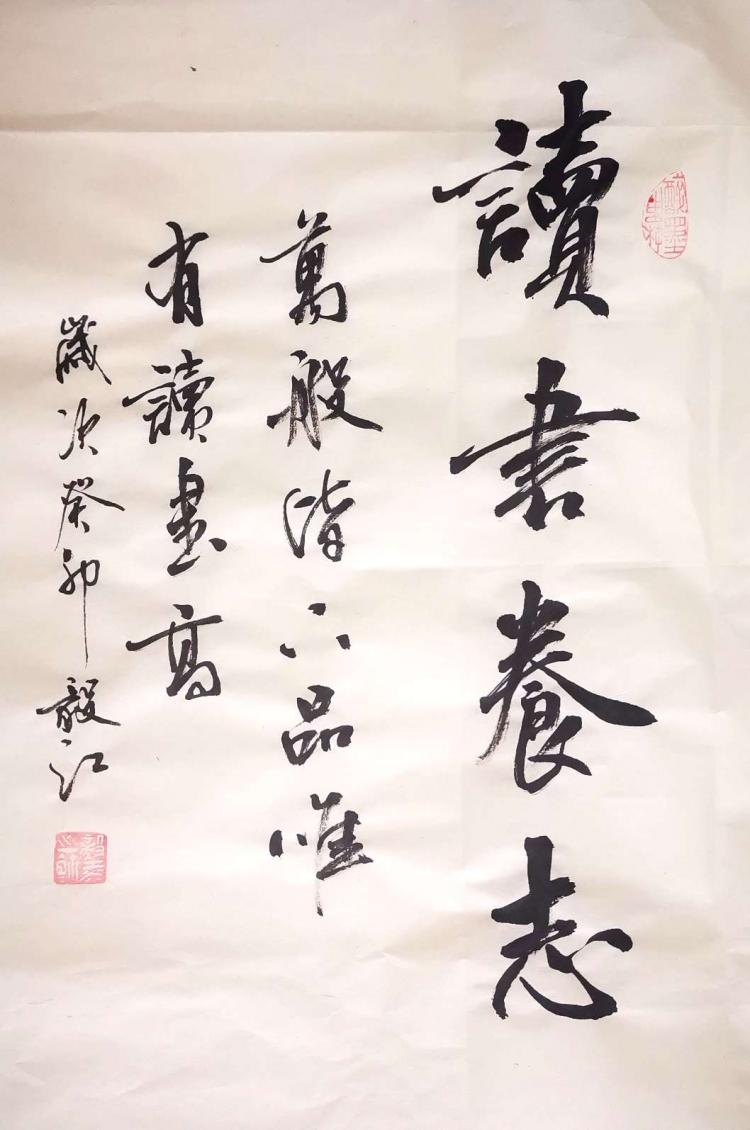 讀書養志
萬般皆下品唯
有讀書高
歲次癸卯毅江